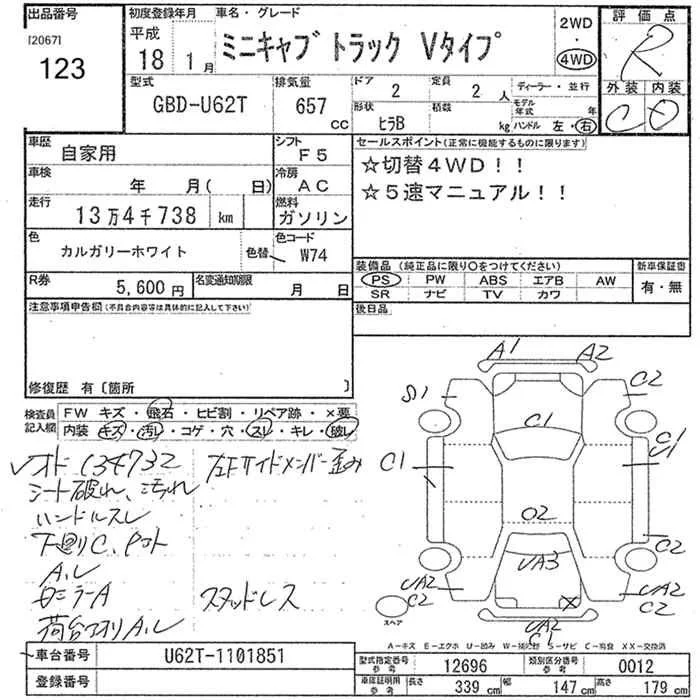 出品番号 初度登録年月 車名・グレード 2WD 評価点
[2067] 平成 ・
123 18 1月 ミニキャブ トラック Vタイプ 4WD R
型式 排気量 ドア 定員 ディーラー・並行 外装 内装
GBD-U62T 657 cc 2 2人 モデル年式 年 C D
形状 積載
ヒラB kg ハンドル 左・右
車歴 自家用 シフト F5 セールスポイント(正常に機能するものに限ります)
車検 年 月( 日) 冷房 AC ☆切替4WD!!
走行 13万4千738 km 燃料 ガソリン ☆5速マニュアル!!
色 カルガリーホワイト 色替 色コード W74
装備品 (純正品に限り○をつけてください) 新車保証書
R券 5,600円 名変通知期限 月 日 PS PW ABS エアB AW 有・無
SR ナビ TV カワ
注意事項申告欄(不具合内容等は具体的に記入して下さい) 後日品
修復歴 有[箇所 ]
検査員記入欄 FW キズ・飛石・ヒビ割・リペア跡・×要
内装 キズ・汚レ・コゲ・穴・スレ・キレ・破レ
メオド 134732 左Fサイドメンバー歪み
シート破れ、汚れ
ハンドルスレ
下廻りC、Pコト
A,レ
スタッドレス
荷台アオリA,レ
A1 A2
S1 C2
C1
C1 C1 U1
O2
C2
UA3
UA2 C2 UA2 C2
スペア
UA2 C1
A-キズ E-エクボ U-凹み W-補修跡 S-サビ C-腐食 XX-交換済
車台番号 U62T-1101851 型式指定番号参考 12696 類別区分番号参考 0012
登録番号 車庫証明用参考 長さ 339cm 幅 147cm 高さ 179cm